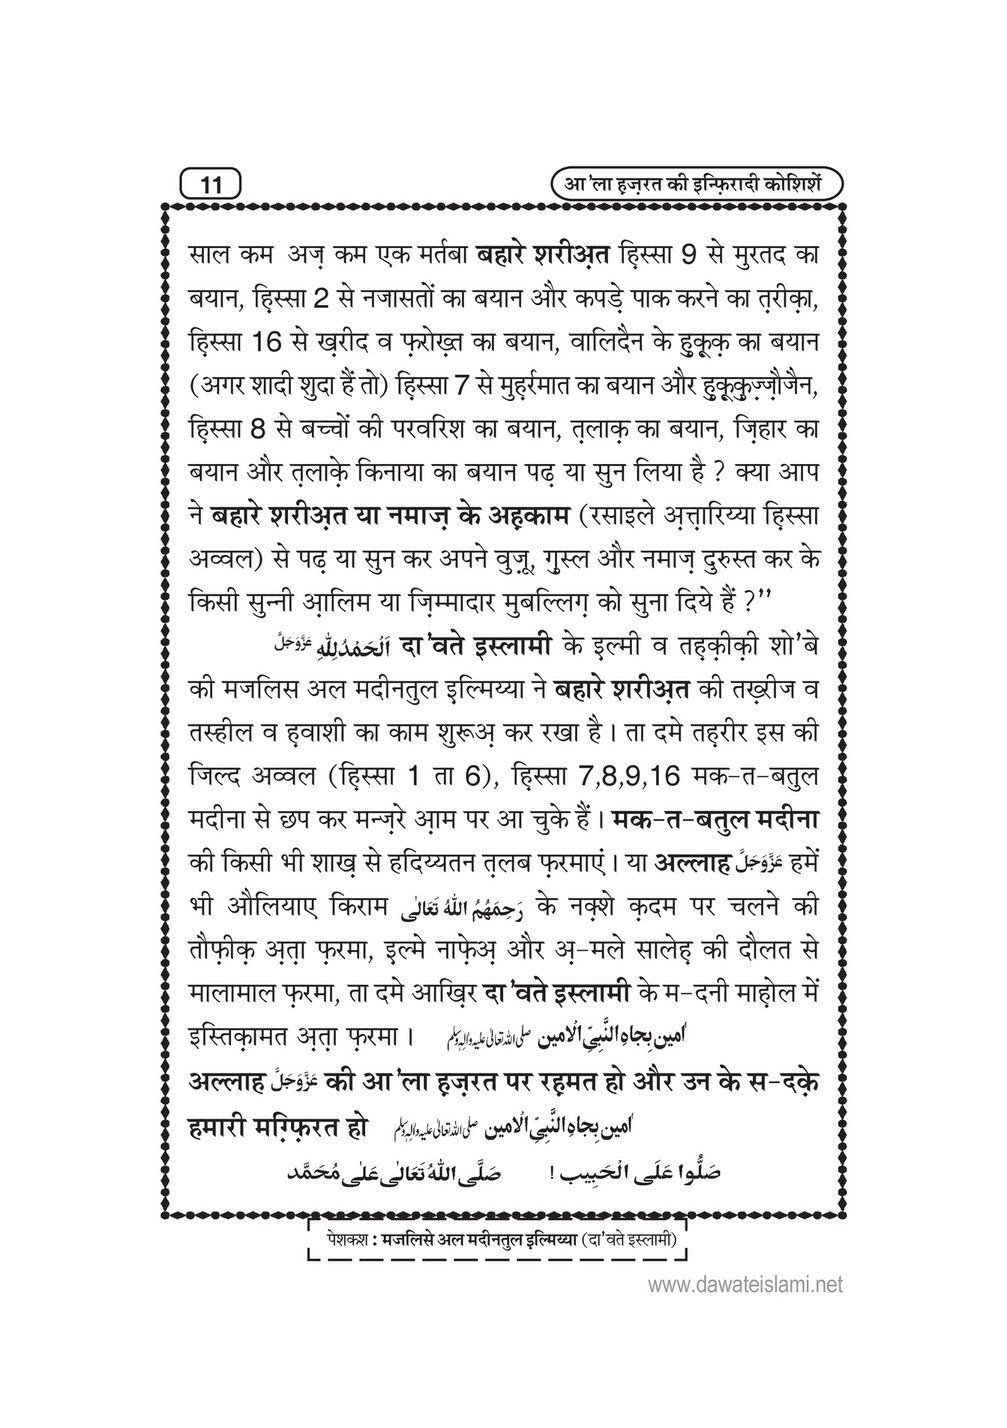 11
आ'ला ह़ज़रत की इन्फ़िरादी कोशिशें
साल कम अज़ कम एक मर्तबा बहारे शरीअ़त ह़िस्सा 9 से मुरतद का
बयान, ह़िस्सा 2 से नजासतों का बयान और कपड़े पाक करने का त़रीक़ा,
ह़िस्सा 16 से ख़रीद व फ़रोख़्त का बयान, वालिदैन के ह़ुक़ूक़ का बयान
(अगर शादी शुदा हैं तो) ह़िस्सा 7 से मुह़र्रमात का बयान और ह़ुक़ूक़ुज़्ज़ौजैन,
ह़िस्सा 8 से बच्चों की परवरिश का बयान, त़लाक़ का बयान, ज़िहार का
बयान और त़लाक़े किनाया का बयान पढ़ या सुन लिया है ? क्या आप
ने बहारे शरीअ़त या नमाज़ के अह़काम (रसाइले अ़त़्त़ारिय्या ह़िस्सा
अव्वल) से पढ़ या सुन कर अपने वुज़ू, ग़ुस्ल और नमाज़ दुरुस्त कर के
किसी सुन्नी आ़लिम या ज़िम्मादार मुबल्लिग़ को सुना दिये हैं ?"
اَلْحَمْدُلِلّٰهِ عَزَّوَجَلَّ दा'वते इस्लामी के इ़ल्मी व तह़क़ीक़ी शो'बे
की मजलिस अल मदीनतुल इ़ल्मिय्या ने बहारे शरीअ़त की तख़्रीज व
तस्हील व ह़वाशी का काम शुरूअ़ कर रखा है। ता दमे तह़रीर इस की
जिल्द अव्वल (ह़िस्सा 1 ता 6), ह़िस्सा 7,8,9,16 मक-त-बतुल
मदीना से छप कर मन्ज़रे आ़म पर आ चुके हैं। मक-त-बतुल मदीना
की किसी भी शाख़ से हदिय्यतन त़लब फ़रमाएं। या अल्लाह عَزَّوَجَلَّ हमें
भी औलियाए किराम رَحِمَهُمُ اللهُ تَعَالٰی के नक़्शे क़दम पर चलने की
तौफ़ीक़ अ़त़ा फ़रमा, इ़ल्मे नाफ़ेअ़ और अ़-मले सालेह़ की दौलत से
मालामाल फ़रमा, ता दमे आख़िर दा'वते इस्लामी के म-दनी माह़ोल में
इस्तिक़ामत अ़त़ा फ़रमा। اٰمین بِجاہِ النَّبِیِّ الْامین صلی اللہ تعالیٰ علیہ واٰلہٖ وسلم
अल्लाह عَزَّوَجَلَّ की आ'ला ह़ज़रत पर रह़मत हो और उन के स-दक़े
हमारी मग़्फ़िरत हो اٰمین بِجاہِ النَّبِیِّ الْامین صلی اللہ تعالیٰ علیہ واٰلہٖ وسلم
صَلُّوا عَلَی الْحَبِیب ! صَلَّی اللهُ تَعَالٰی عَلٰی مُحَمَّد
पेशकश : मजलिसे अल मदीनतुल इ़ल्मिय्या (दा'वते इस्लामी)
www.dawateislami.net